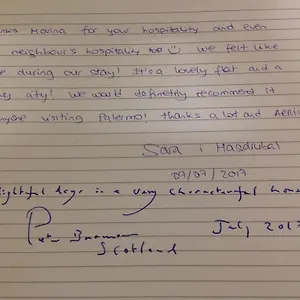 nks Marina for your hospitality and even
neighbour's hospitality too ☺ we felt like
e during our stay! It's a lovely flat and a
ely city! We would definetily recommend it
nyone visiting Palermo! thanks a lot and
Sara i Hasdrubal
07/07/2017
lightful days in a very characterful
Scotland
July 201